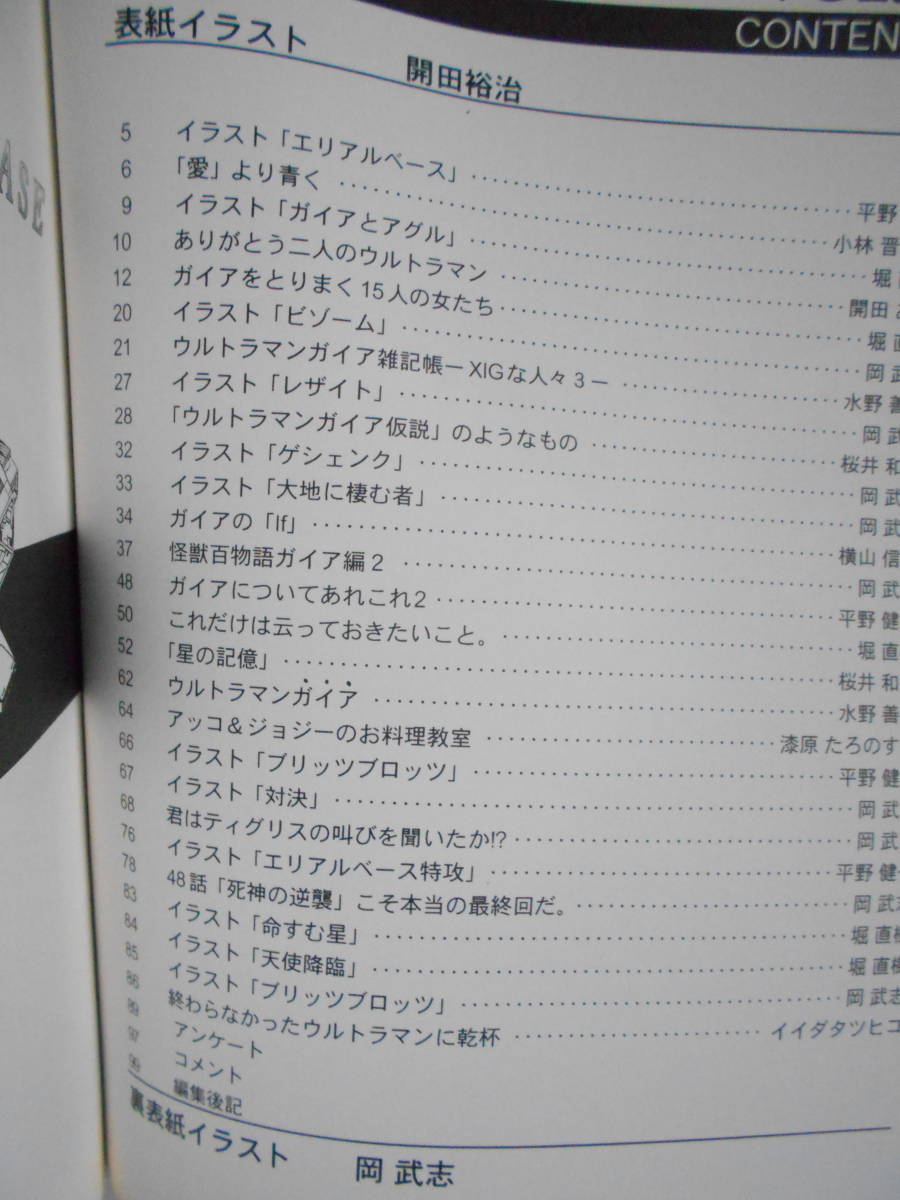 CONTEN
表紙イラスト 開田裕治
ASE
5 イラスト「エリアルベース」 平野
6 「愛」より青く 小林 晋
9 イラスト「ガイアとアグル」 堀
10 ありがとう二人のウルトラマン 開田
12 ガイアをとりまく15人の女たち 堀 直
20 イラスト「ビゾーム」 岡 武
21 ウルトラマンガイア雑記帳－XIGな人々3－ 水野 善
27 イラスト「レザイト」 岡 武
28 「ウルトラマンガイア仮説」のようなもの 桜井 和
32 イラスト「ゲシェンク」 岡 武
33 イラスト「大地に棲む者」 岡 武
34 ガイアの「If」 横山 信
37 怪獣百物語ガイア編2 岡 武
48 ガイアについてあれこれ2 平野 健
50 これだけは云っておきたいこと。 堀 直
52 「星の記憶」 桜井 和
62 ウルトラマンガイア 水野 善
64 アッコ＆ジョジーのお料理教室 漆原 たろのす
66 イラスト「ブリッツブロッツ」 平野 健
67 イラスト「対決」 岡 武
68 君はティグリスの叫びを聞いたか!? 岡 武
76 イラスト「エリアルベース特攻」 平野 健
78 48話「死神の逆襲」こそ本当の最終回だ。 岡 武志
83 イラスト「命すむ星」 堀 直樹
84 イラスト「天使降臨」 堀 直樹
85 イラスト「ブリッツブロッツ」 岡 武志
86 終わらなかったウルトラマンに乾杯 イイダタツヒコ
89 アンケート
97 コメント
99 編集後記
裏表紙イラスト 岡 武志